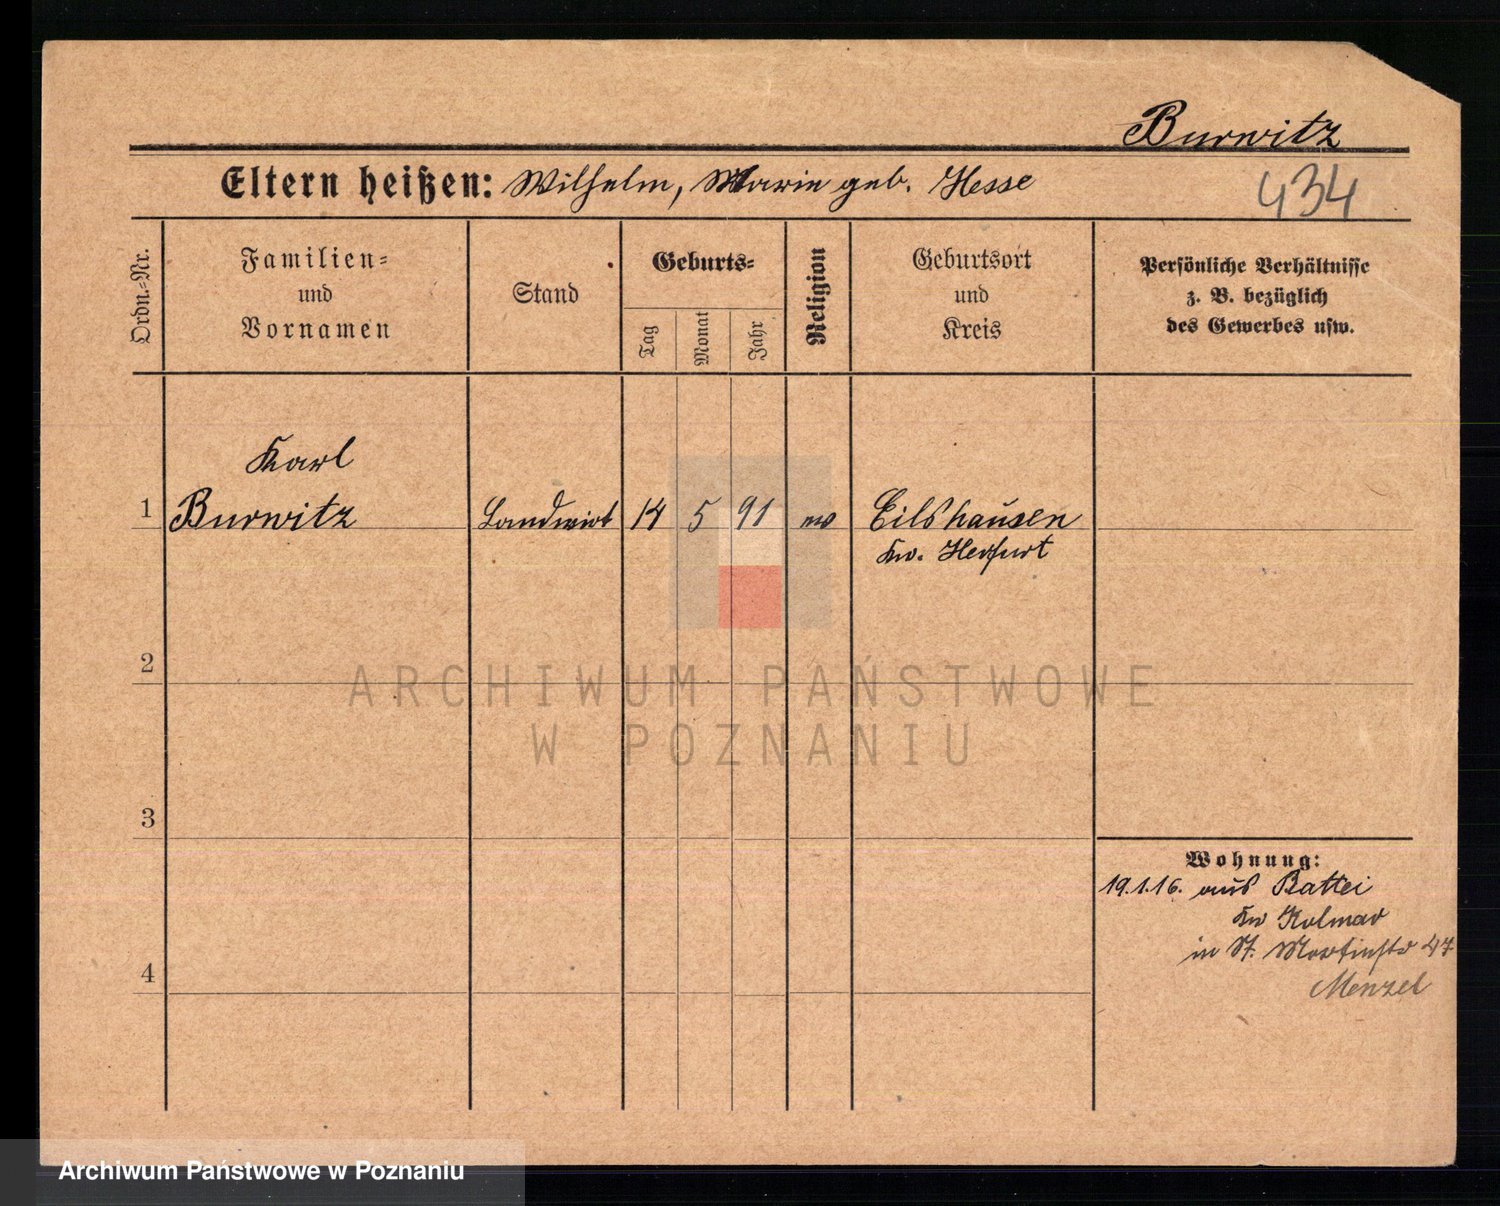 Burwitz
Eltern heißen: Wilhelm, Marie geb. Hesse
434
Ordn.-Nr.
Familien-
und
Vornamen
Stand
Geburts-
Tag
Monat
Jahr
Religion
Geburtsort
und
Kreis
Persönliche Verhältnisse
z. B. bezüglich
des Gewerbes usw.
Karl
1 Burwitz Landwirt 14 5 91 ev Eilshausen
Kr. Herfurt
2
ARCHIWUM PAŃSTWOWE
W POZNANIU
3
Wohnung:
19.1.16. aus Rattei
Kr Kolmar
in St. Martinstr 47
Menzel
4
Archiwum Państwowe w Poznaniu